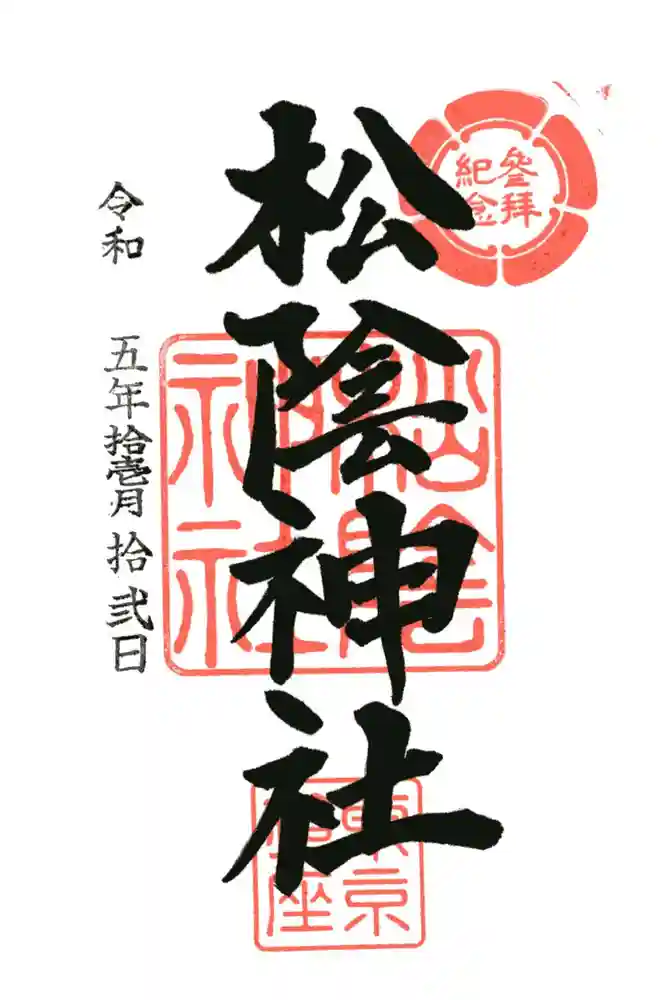 參拝
紀念
松陰神社
令和 五年拾壱月拾弐日
松陰
神社
東京
座